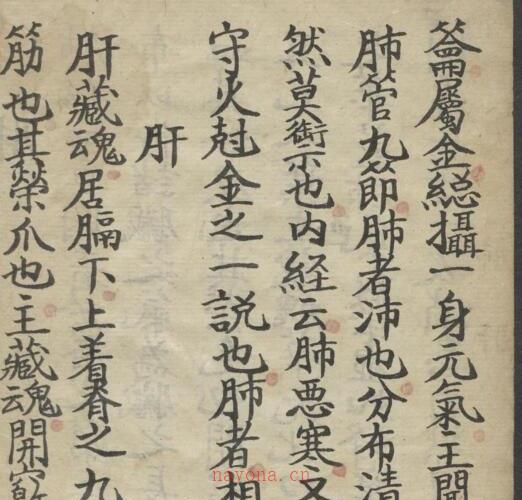 籥屬金總攝一身元氣主開
肺管九節肺者沛也分布清
然莫御示也内経云肺悪寒又
守火尅金之一説也肺者相
肝
肝藏魂居膈下上着脊之九
筋也其榮爪也主藏魂開竅
nayona.cn